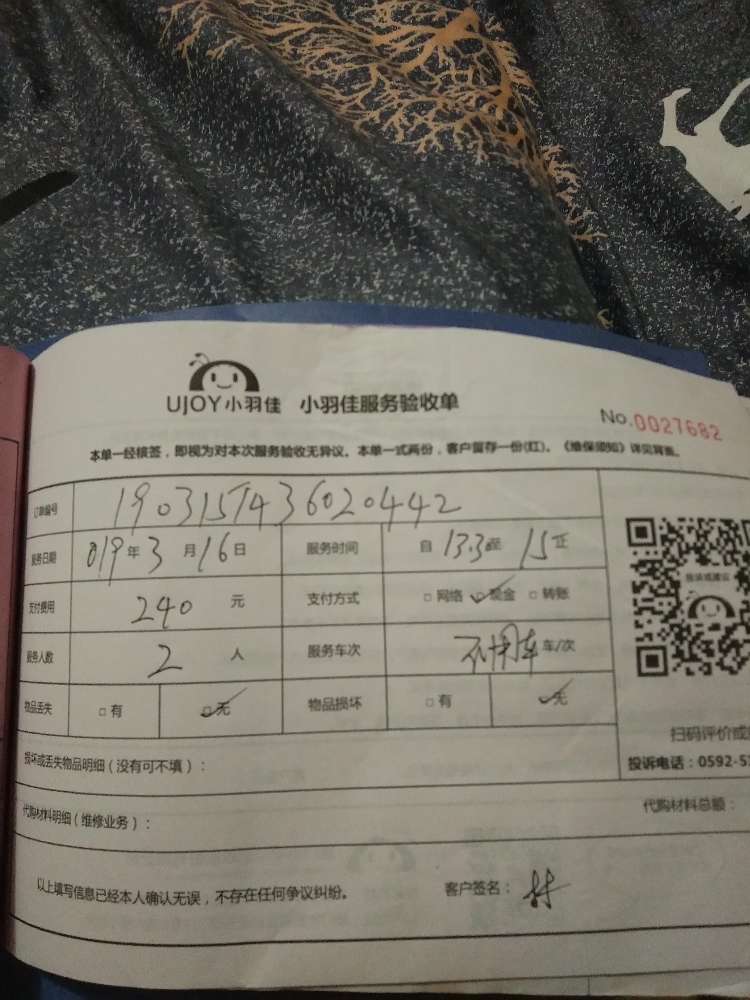 UJOY小羽佳 小羽佳服务验收单
No.0027682
本单一经核签，即视为对本次服务验收无异议。本单一式两份，客户留存一份(红)。《维保须知》详见背面。
订单编号 1903151436020442
服务日期 019年3月16日 服务时间 自13.3至15正
支付费用 240元 支付方式 □网络 ☑现金 □转账
服务人数 2人 服务车次 不用车 车/次
物品丢失 □有 ☑无 物品损坏 □有 ☑无
扫码评价或
损坏或丢失物品明细（没有可不填）：
投诉电话：0592-5
代购材料明细（维修业务）：
代购材料总额：
以上填写信息已经本人确认无误，不存在任何争议纠纷。 客户签名：林